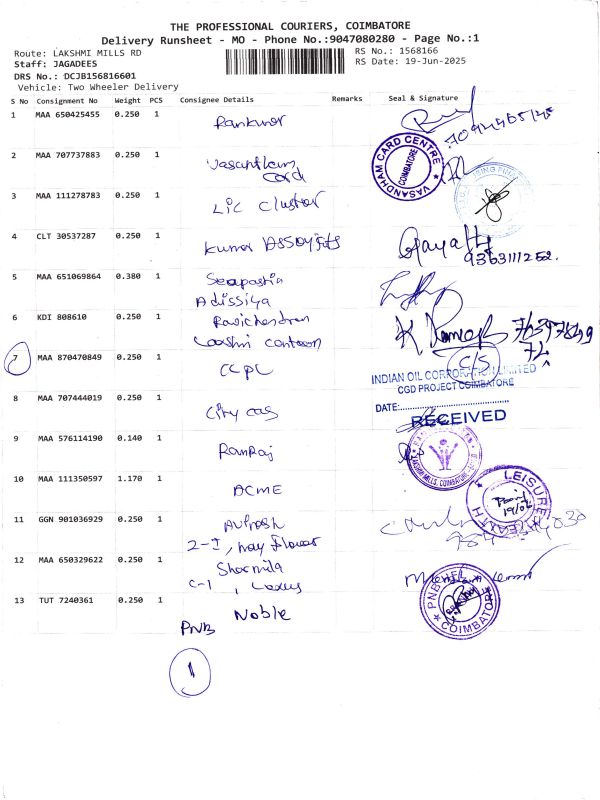 THE PROFESSIONAL COURIERS, COIMBATORE
Delivery Runsheet - MO - Phone No.:9047080280 - Page No.:1
Route: LAKSHMI MILLS RD
RS No.: 1568166
Staff: JAGADEES
RS Date: 19-Jun-2025
DRS No.: DCJB156816601
Vehicle: Two Wheeler Delivery
S No Consignment No Weight PCS Consignee Details Remarks Seal & Signature
1 MAA 650425455 0.250 1
2 MAA 707737883 0.250 1 Vasantham
Card
VASANDHAM CARD CENTRE
COIMBATORE
3 MAA 111278783 0.250 1 LIC Cluster
4 CLT 30537287 0.250 1 Kumar
Gayathri
9363111252.
5 MAA 651069864 0.380 1
6 KDI 808610 0.250 1 Ravichendran
7 MAA 870470849 0.250 1 CCPL
C/S
INDIAN OIL CORPORATION LIMITED
CGD PROJECT COIMBATORE
DATE:
RECEIVED
8 MAA 707444019 0.250 1 City gas
9 MAA 576114190 0.140 1 RanRaj
LAKSHMI MILLS, COIMBATORE
10 MAA 111350597 1.170 1 ACME
LEISURE
HEALTH
19/06
11 GGN 901036929 0.250 1
2-I, may Flower
12 MAA 650329622 0.250 1 Sharmila
C-1,
13 TUT 7240361 0.250 1 Noble
PNB
PNB
COIMBATORE
1